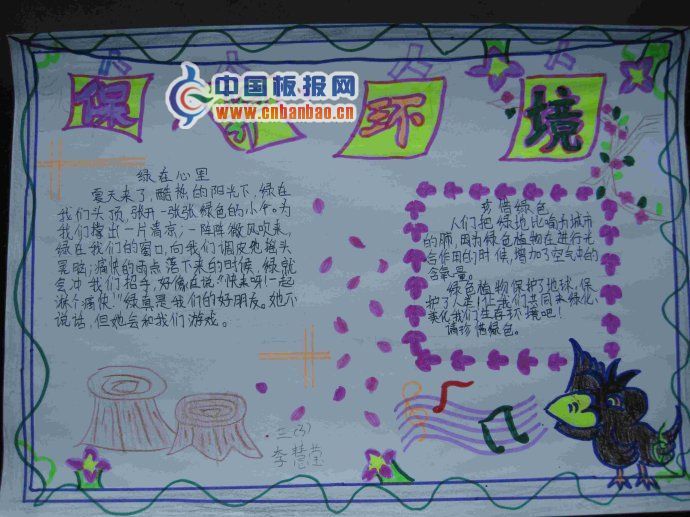 保 环 境
中国板报网
www.cnbanbao.cn
绿在心里
夏天来了,酷热的阳光下,绿在
我们头顶,张开一张张绿色的小伞。为
我们撑出一片清凉;一阵阵微风吹来,
绿在我们的窗口,向我们调皮地摇头
晃脑;痛快的雨点落下来的时候,绿就
会冲我们招手,好像在说“快来呀!一起
淋个痛快!”绿真是我们的好朋友。她不
说话,但她会和我们游戏。
珍惜绿色
人们把绿地比喻为城市
的肺,因为绿色植物在进行光
合作用的时候,增加了空气中的
含氧量。
绿色植物保护了地球,保
护了人类!让我们共同来绿化、
美化我们生存环境吧!
请珍惜绿色。
三(3)
李慧莹